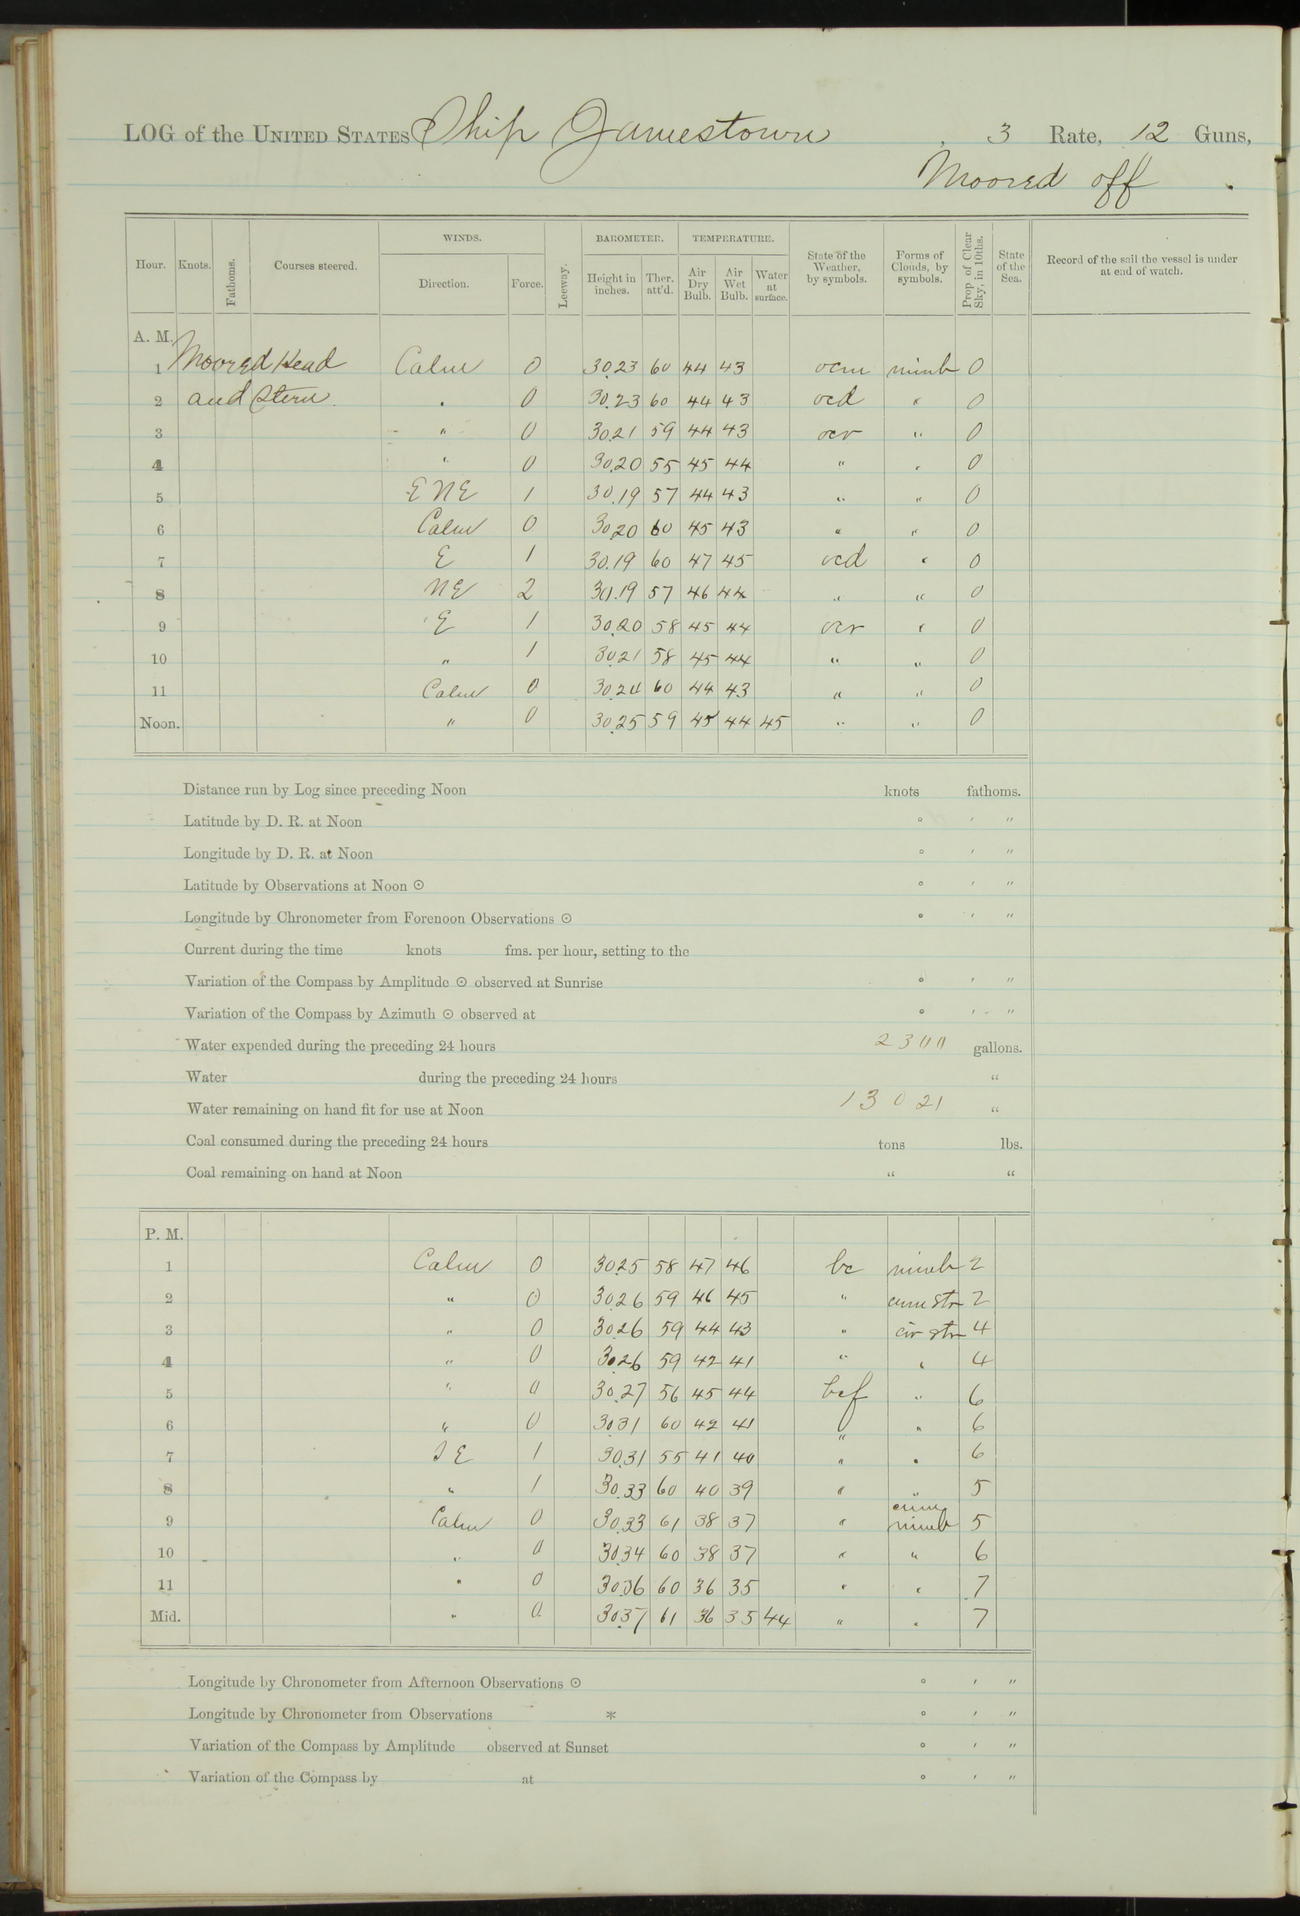 LOG of the UNITED STATES Ship Jamestown, 3 Rate, 12 Guns,
Moored off
Hour. Knots. Fathoms. Courses steered. WINDS. Direction. Force. Leeway. BAROMETER. Height in inches. Ther. att'd. TEMPERATURE. Air Dry Bulb. Air Wet Bulb. Water at surface. State of the Weather, by symbols. Forms of Clouds, by symbols. Prop. of Clear Sky, in 10ths. State of the Sea. Record of the sail the vessel is under at end of watch.
A. M.
1 Moored Head Calm 0 30.23 60 44 43 ocm nimb 0
2 and Stern " 0 30.23 60 44 43 ocd " 0
3 " 0 30.21 59 44 43 ocr " 0
4 " 0 30.20 55 45 44 " " 0
5 ENE 1 30.19 57 44 43 " " 0
6 Calm 0 30.20 60 45 43 " " 0
7 E 1 30.19 60 47 45 ocd " 0
8 NE 2 30.19 57 46 44 " " 0
9 E 1 30.20 58 45 44 ocr " 0
10 " 1 30.21 58 45 44 " " 0
11 Calm 0 30.24 60 44 43 " " 0
Noon. " 0 30.25 59 45 44 45 " " 0
Distance run by Log since preceding Noon knots fathoms.
Latitude by D. R. at Noon ° ′ ″
Longitude by D. R. at Noon ° ′ ″
Latitude by Observations at Noon ☉ ° ′ ″
Longitude by Chronometer from Forenoon Observations ☉ ° ′ ″
Current during the time knots fms. per hour, setting to the
Variation of the Compass by Amplitude ☉ observed at Sunrise ° ′ ″
Variation of the Compass by Azimuth ☉ observed at ° ′ ″
Water expended during the preceding 24 hours 2300 gallons.
Water during the preceding 24 hours "
Water remaining on hand fit for use at Noon 13021 "
Coal consumed during the preceding 24 hours tons lbs.
Coal remaining on hand at Noon " "
P. M.
1 Calm 0 30.25 58 47 46 bc nimb 2
2 " 0 30.26 59 46 45 " cum str 2
3 " 0 30.26 59 44 43 " cir str 4
4 " 0 30.26 59 42 41 " " 4
5 " 0 30.27 56 45 44 bcf " 6
6 " 0 30.31 60 42 41 " " 6
7 SE 1 30.31 55 41 40 " " 6
8 " 1 30.33 60 40 39 " " 5
9 Calm 0 30.33 61 38 37 " cum nimb 5
10 " 0 30.34 60 38 37 " " 6
11 " 0 30.36 60 36 35 " " 7
Mid. " 0 30.37 61 36 35 44 " " 7
Longitude by Chronometer from Afternoon Observations ☉ ° ′ ″
Longitude by Chronometer from Observations * ° ′ ″
Variation of the Compass by Amplitude observed at Sunset ° ′ ″
Variation of the Compass by at ° ′ ″